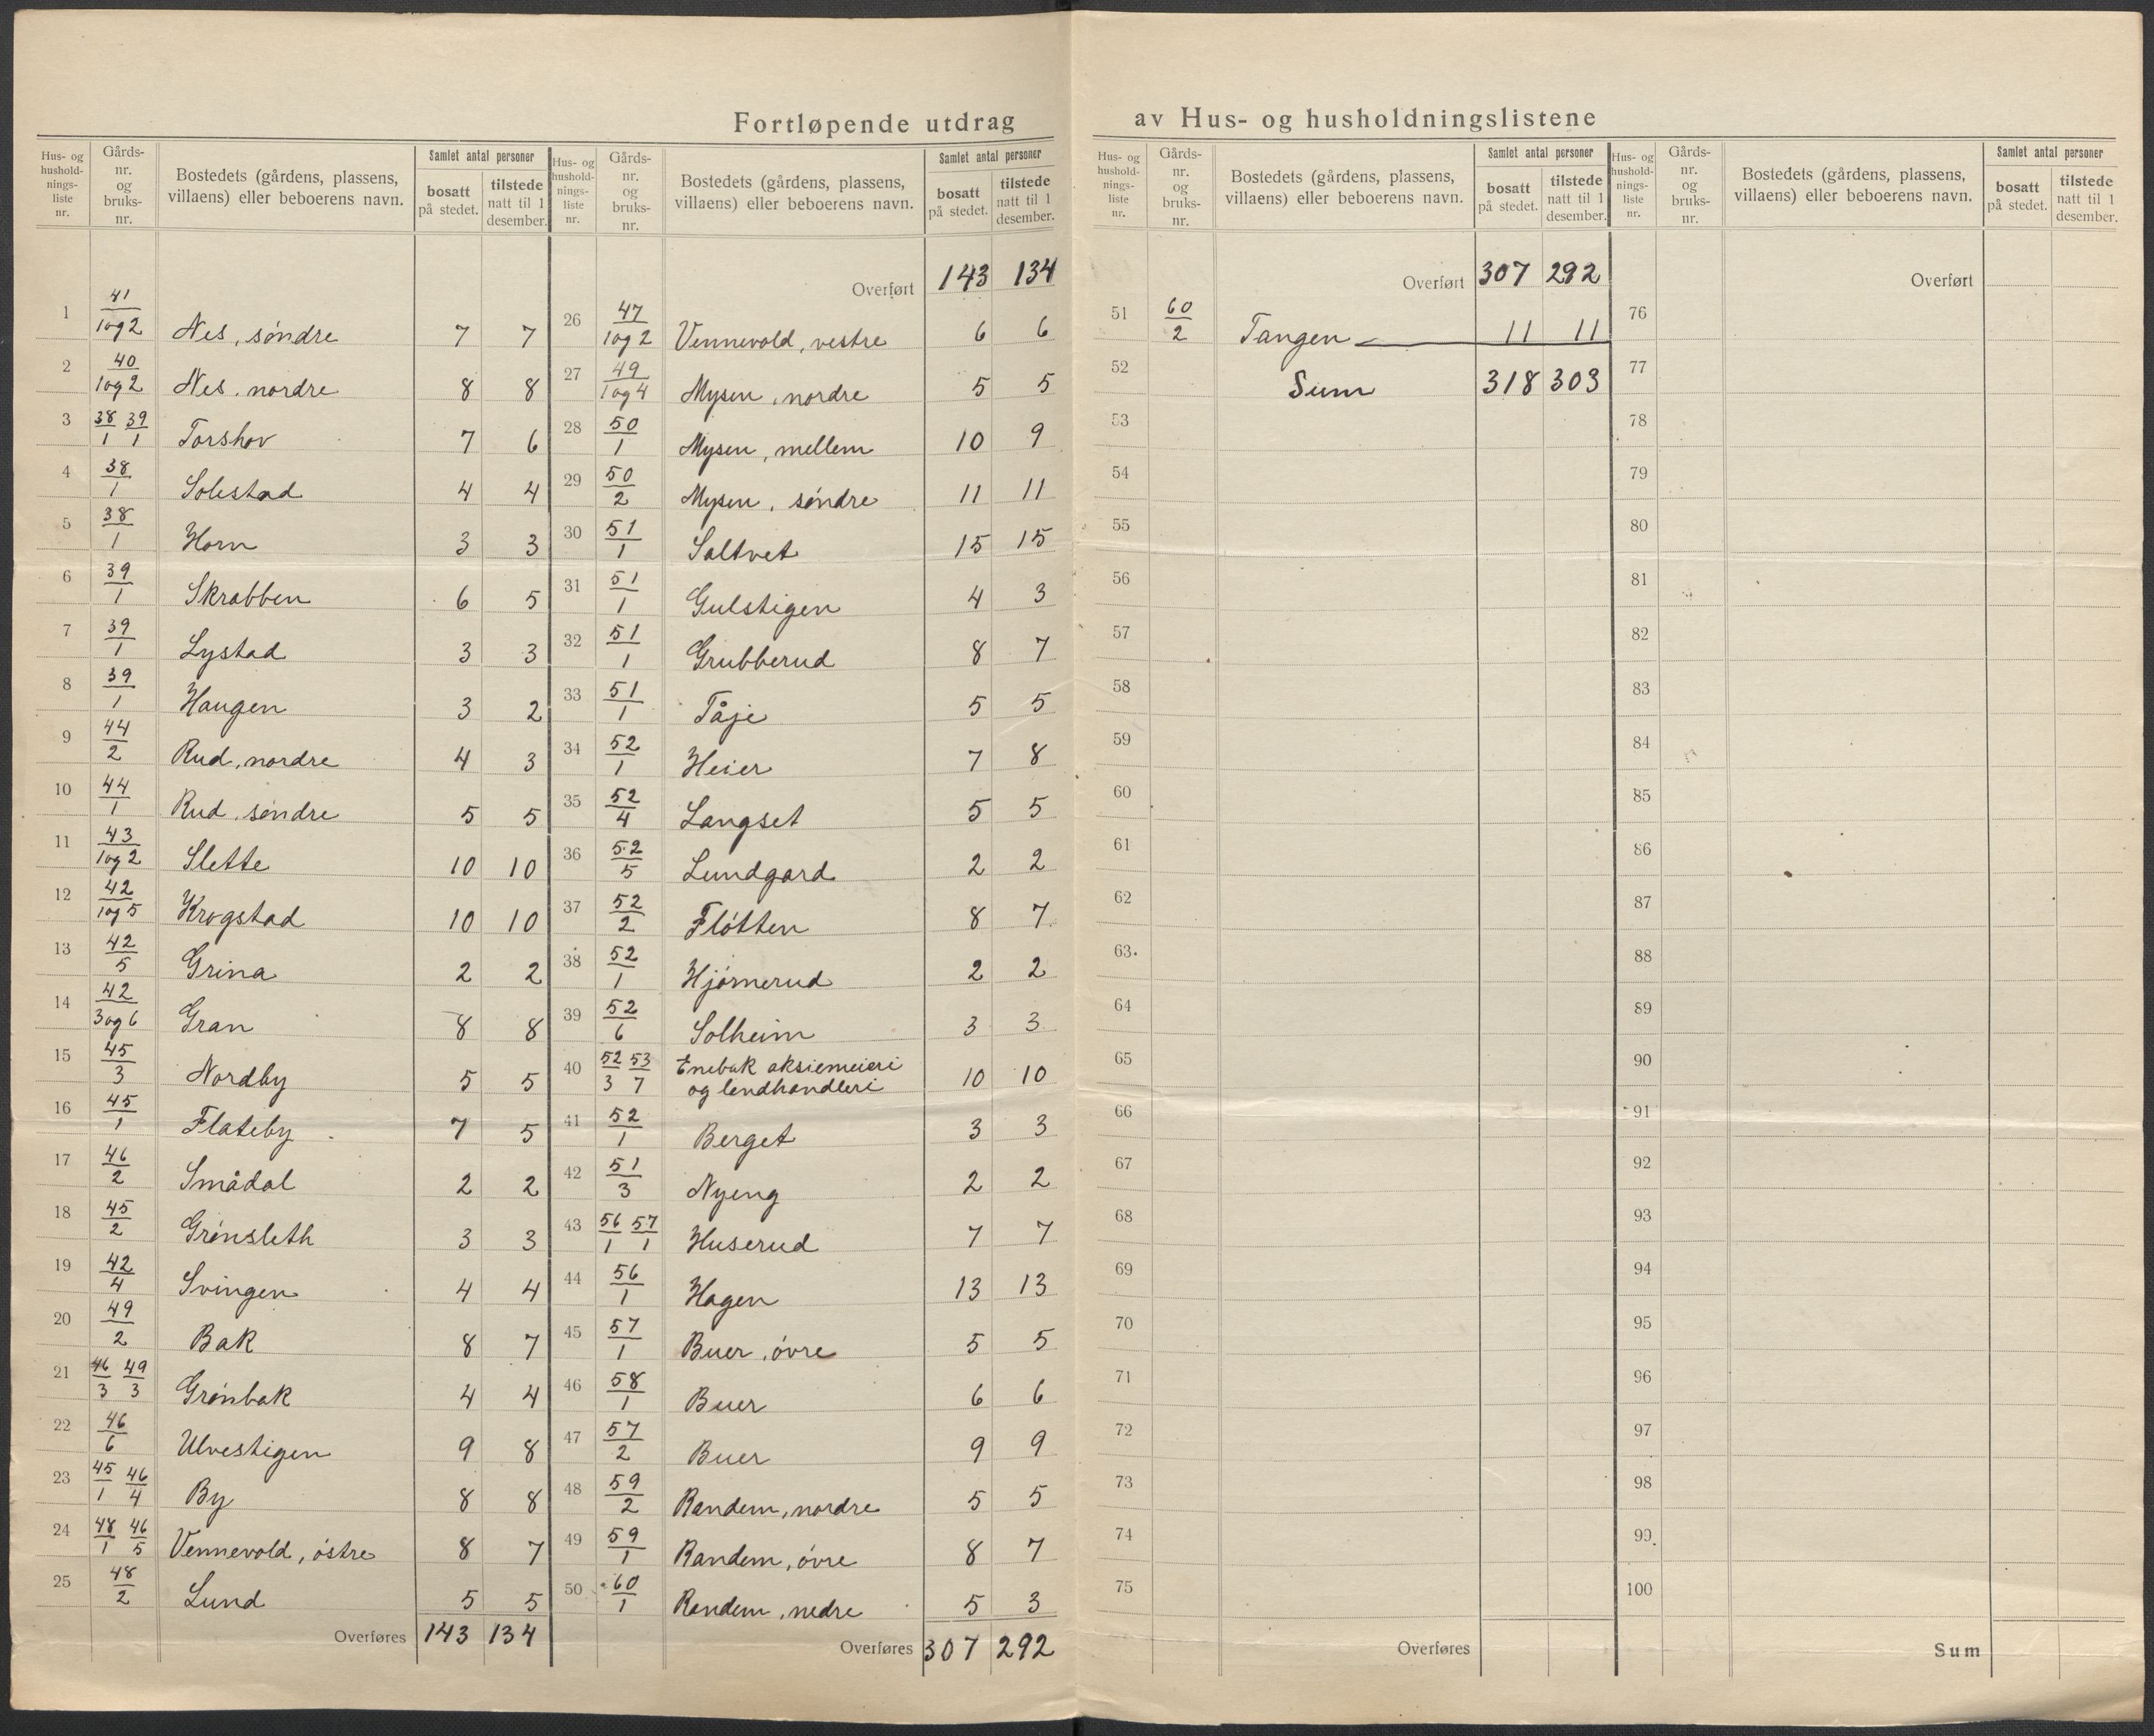 Fortløpende utdrag av Hus- og husholdningslistene
Hus- og hushold-nings-liste nr. Gårds-nr. og bruks-nr. Bostedets (gårdens, plassens, villaens) eller beboerens navn. Samlet antal personer bosatt på stedet. tilstede natt til 1 desember.
1 41/1og2 Nes, søndre 7 7
2 40/1og2 Nes, nordre 8 8
3 38/1 39/1 Torshov 7 6
4 38/1 Solestad 4 4
5 38/1 Horn 3 3
6 39/1 Skrabben 6 5
7 39/1 Lystad 3 3
8 39/1 Haugen 3 2
9 44/2 Rud, nordre 4 3
10 44/1 Rud, søndre 5 5
11 43/1og2 Slette 10 10
12 42/1og5 Krogstad 10 10
13 42/5 Grina 2 2
14 42/3og6 Gran 8 8
15 45/3 Nordby 5 5
16 45/1 Flateby 7 5
17 46/2 Smådal 2 2
18 45/2 Grønsleth 3 3
19 42/4 Svingen 4 4
20 49/2 Bak 8 7
21 46/3 49/3 Grønbak 4 4
22 46/6 Ulvestigen 9 8
23 45/1 46/4 By 8 8
24 48/1 46/5 Vennevold, østre 8 7
25 48/2 Lund 5 5
Overføres 143 134
Hus- og hushold-nings-liste nr. Gårds-nr. og bruks-nr. Bostedets (gårdens, plassens, villaens) eller beboerens navn. Samlet antal personer bosatt på stedet. tilstede natt til 1 desember.
Overført 143 134
26 47/1og2 Vennevold, vestre 6 6
27 49/1og4 Mysen, nordre 5 5
28 50/1 Mysen, mellem 10 9
29 50/2 Mysen, søndre 11 11
30 51/1 Saltvet 15 15
31 51/1 Gulstigen 4 3
32 51/1 Grubberud 8 7
33 51/1 Tåje 5 5
34 52/1 Heier 7 8
35 52/4 Langset 5 5
36 52/5 Lundgard 2 2
37 52/2 Fløtten 8 7
38 52/1 Hjørnerud 2 2
39 52/6 Solheim 3 3
40 52/3 53/7 Enebak aksiemeieri
og landhandleri 10 10
41 52/1 Berget 3 3
42 51/3 Nyeng 2 2
43 56/1 57/1 Huserud 7 7
44 56/1 Hagen 13 13
45 57/1 Buer, øvre 5 5
46 58/1 Buer 6 6
47 57/2 Buer 9 9
48 59/2 Randem, nordre 5 5
49 59/1 Randem, øvre 8 7
50 60/1 Randem, nedre 5 3
Overføres 307 292
Hus- og hushold-nings-liste nr. Gårds-nr. og bruks-nr. Bostedets (gårdens, plassens, villaens) eller beboerens navn. Samlet antal personer bosatt på stedet. tilstede natt til 1 desember.
Overført 307 292
51 60/2 Tangen 11 11
52 Sum 318 303
53
54
55
56
57
58
59
60
61
62
63
64
65
66
67
68
69
70
71
72
73
74
75
Overføres
Hus- og hushold-nings-liste nr. Gårds-nr. og bruks-nr. Bostedets (gårdens, plassens, villaens) eller beboerens navn. Samlet antal personer bosatt på stedet. tilstede natt til 1 desember.
Overført
76
77
78
79
80
81
82
83
84
85
86
87
88
89
90
91
92
93
94
95
96
97
98
99
100
Sum